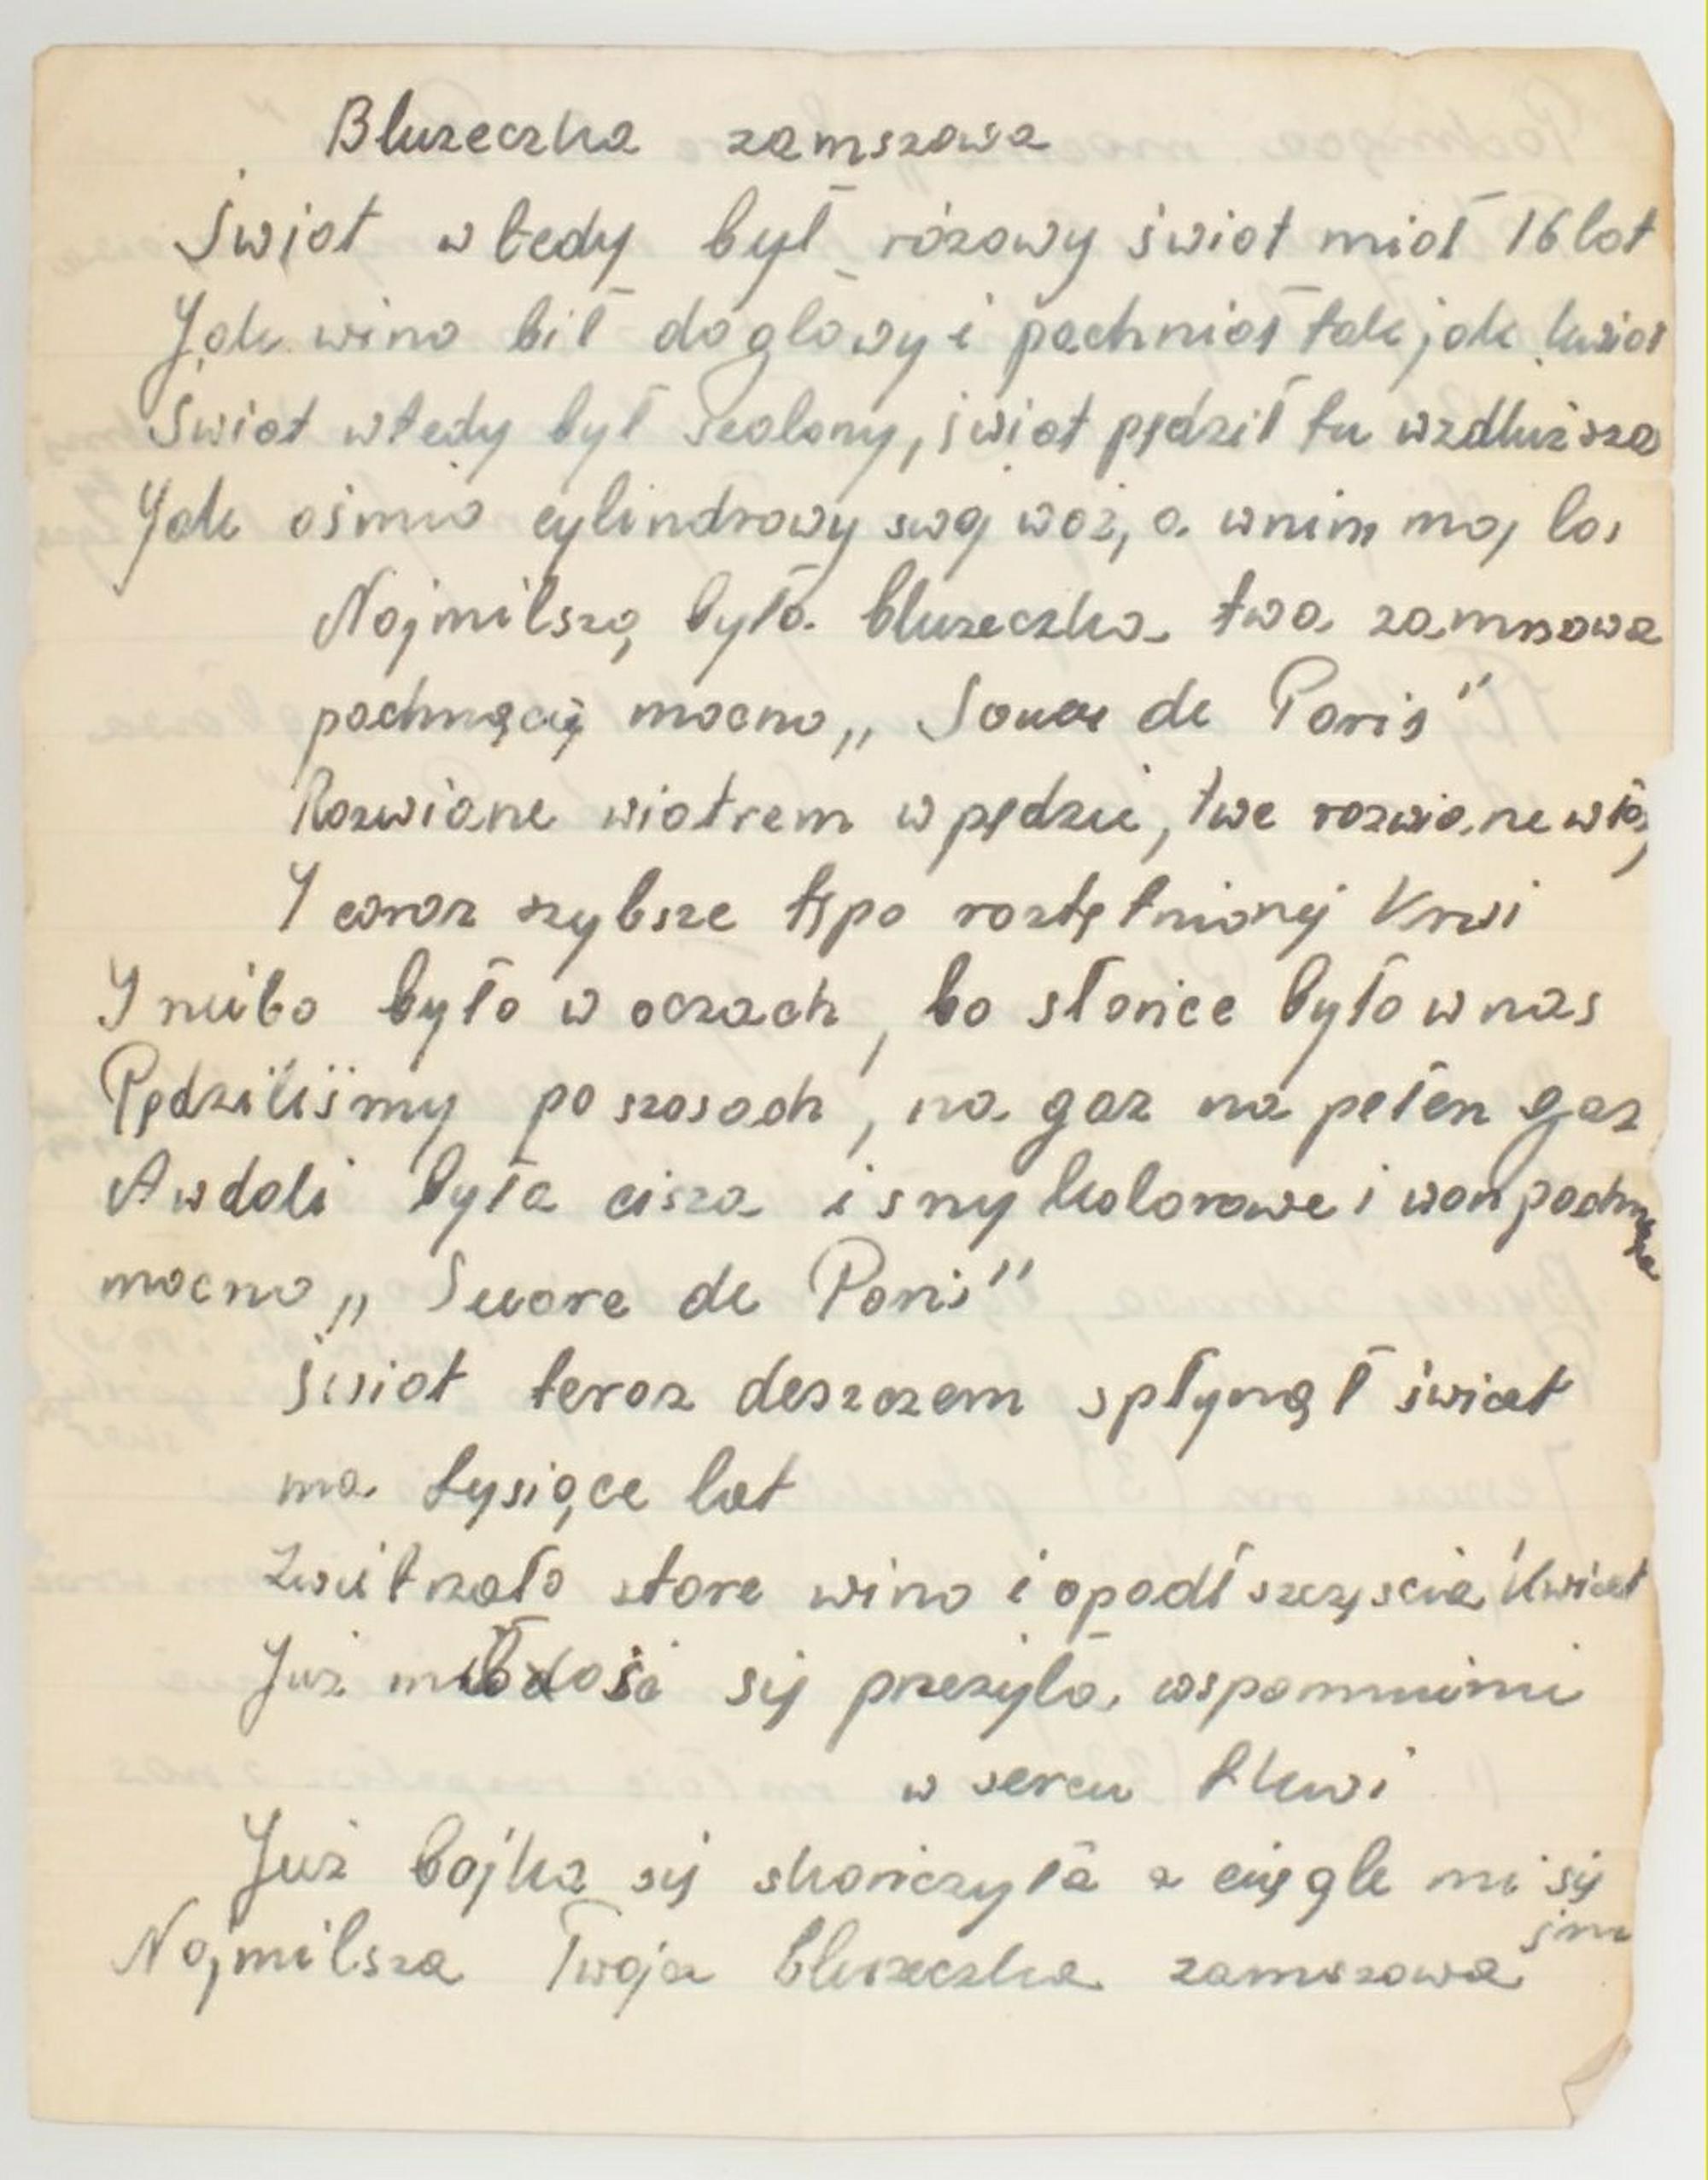 Bluzeczka zamszowa
Świat wtedy był różowy świat miał 16 lat
Jak wino bił do głowy i pachniał tak jak kwiat
Świat wtedy był szalony, świat pędził tu wzdłuż sza
Jak ośmio cylindrowy swój wóz, a w nim mój los
Najmilszą była bluzeczka twa zamszowa
pachnącą mocno „ Souar de Paris"
Rozwiane wiatrem w pędzie, twe rozwiane wło
I coraz szybsze tępo roztętnionej Krwi
I niebo było w oczach, bo słońce było w nas
Pędziliśmy po szosach, na gaz na pełen gaz
A w dali była cisza i sny kolorowe i woń pachnąca
mocno „ Suare de Paris"
Świat teraz deszczem spłynął świat
ma tysiące lat
Zwietrzało stare wino i opadł szczęścia kwiat
Już młodość się przeżyła wspomnienie
w sercu tkwi
Już bajka się skończyła a ciągle mi się
śni
Najmilsza Twoja bluzeczka zamszowa